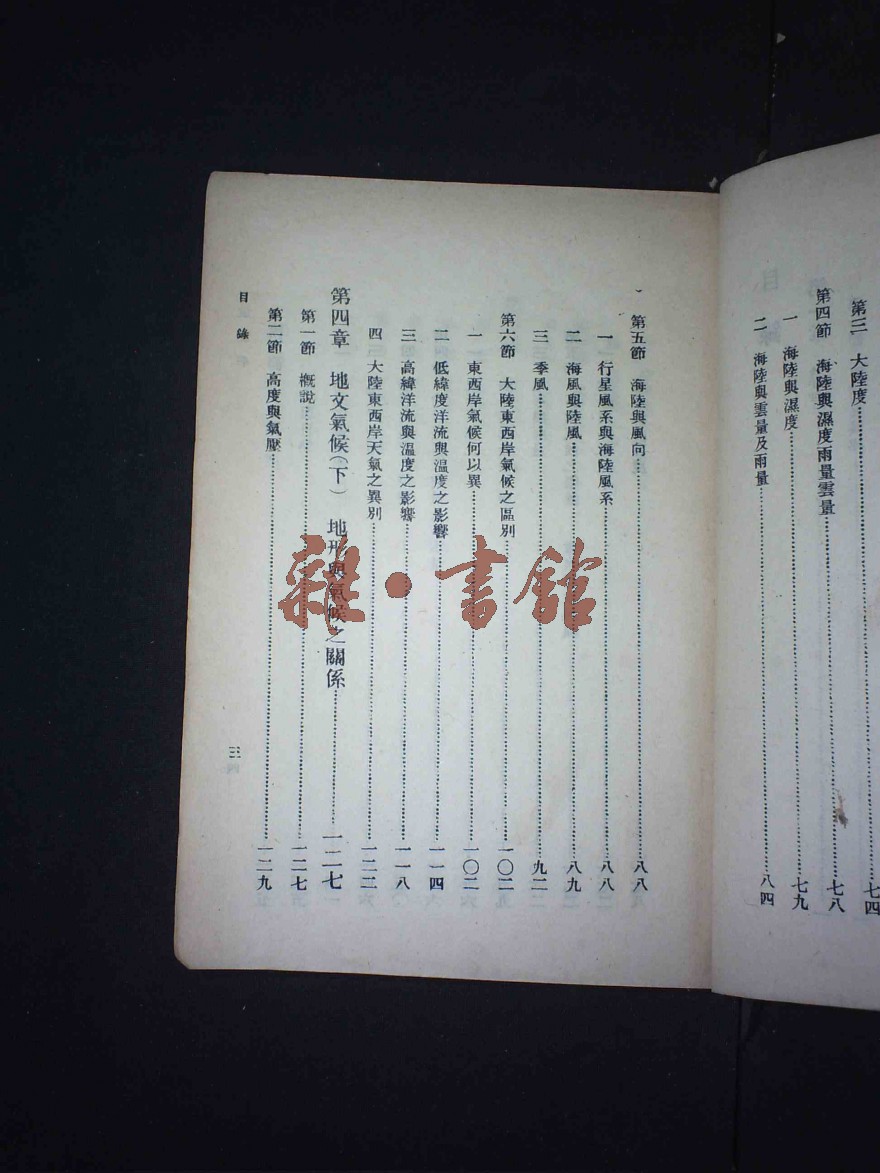 第三 大陸度……七四
第四節 海陸與濕度雨量雲量……七八
一 海陸與濕度……七九
二 海陸與雲量及雨量……八四
第五節 海陸與風向……八八
一 行星風系與海陸風系……八八
二 海風與陸風……八九
三 季風……九二
第六節 大陸東西岸氣候之區別……一〇二
一 東西岸氣候何以異……一〇二
二 低緯度洋流與温度之影響……一一四
三 高緯洋流與温度之影響……一一八
四 大陸東西岸天氣之異別……一二二
第四章 地文氣候(下) 地形與氣候之關係……一二七
第一節 概說……一二七
第二節 高度與氣壓……一二九
目錄
三
雜·書館